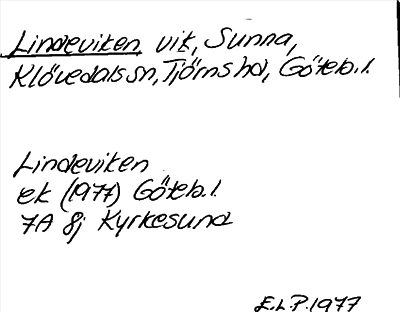 Lindeviken, vik, Sunna,
Klövedals sn, Tjörns hd, Göteb.l.
Lindeviken
ek (1977) Göteb.l.
7A 8j Kyrkesund
E.L.P. 1977